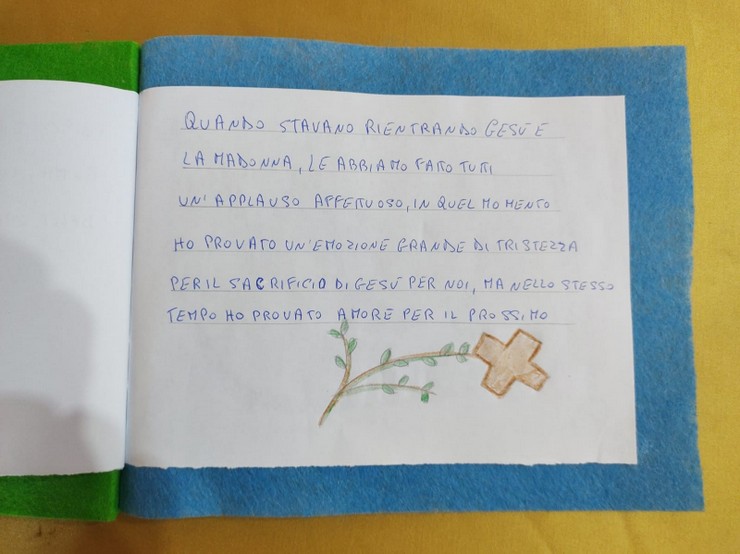 QUANDO STAVANO RIENTRANDO GESÙ E
LA MADONNA, LE ABBIAMO FATO TUTI
UN'APPLAUSO AFFETUOSO, IN QUEL MOMENTO
HO PROVATO UN'EMOZIONE GRANDE DI TRISTEZZA
PER IL SACRIFICIO DI GESÙ PER NOI, MA NELLO STESSO
TEMPO HO PROVATO AMORE PER IL PROSSIMO